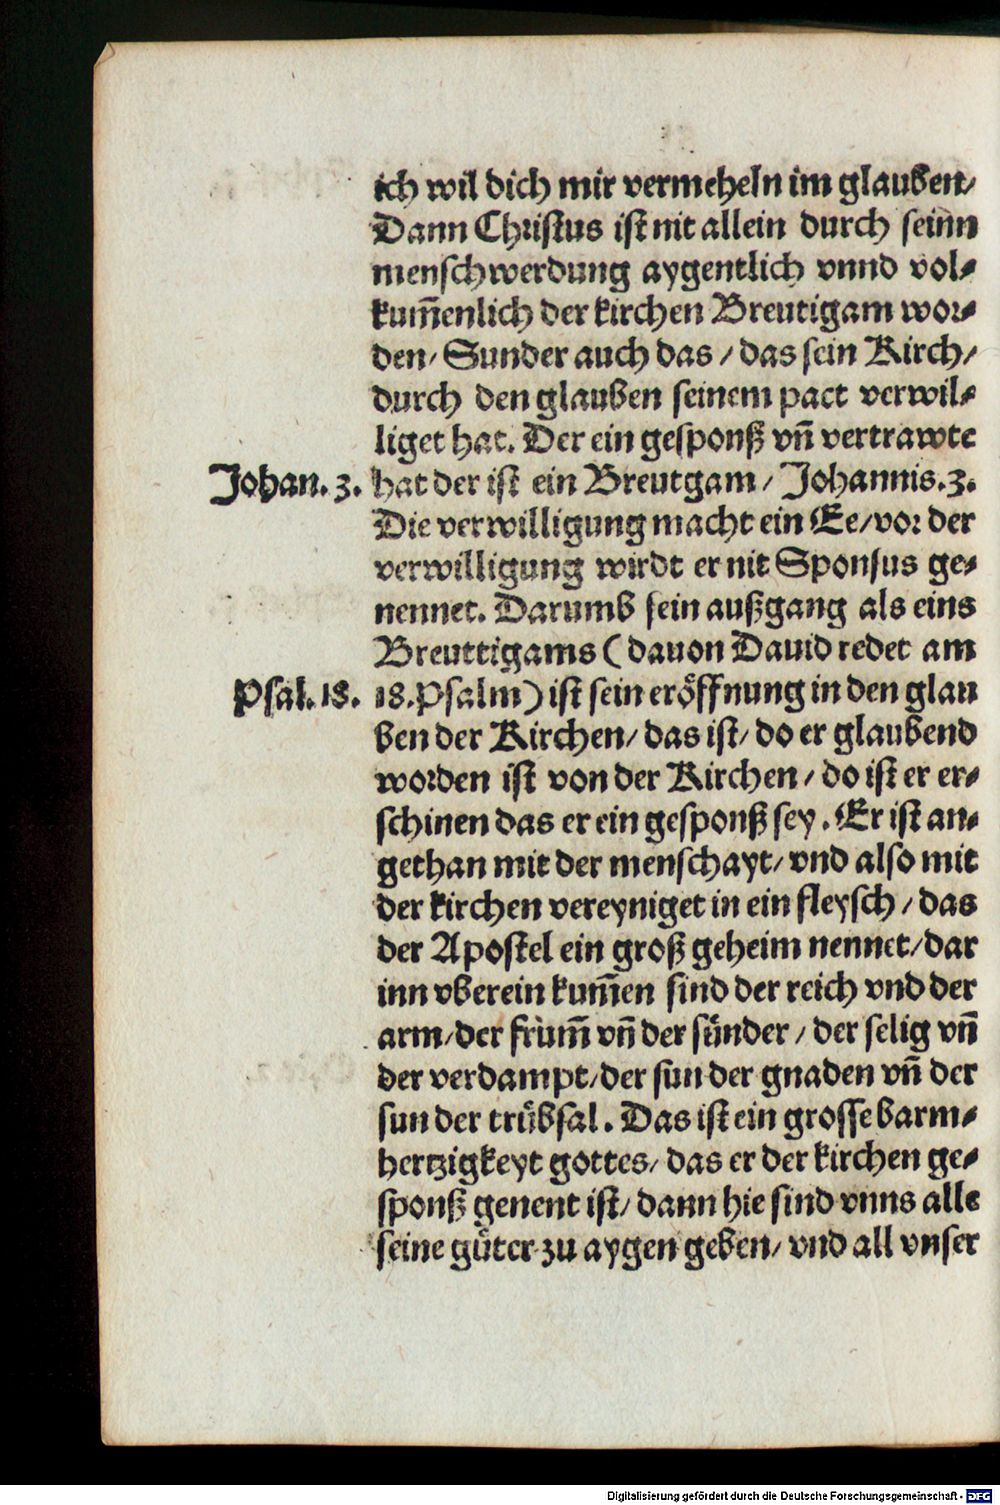 ich wil dich mir vermeheln im glauben/
Dann Christus ist nit allein durch seinn
menschwerdung aygentlich vnnd vol⸗
kum̄enlich der kirchen Breutigam wor⸗
den/ Sunder auch das / das sein Kirch/
durch den glauben seinem pact verwil⸗
liget hat. Der ein gesponß vn̄ vertrawte
Johan. 3. hat der ist ein Breutgam / Johannis.3.
Die verwilligung macht ein Ee/vor der
verwilligung wirdt er nit Sponsus ge⸗
nennet. Darumb sein außgang als eins
Breuttigams ( dauon Dauid redet am
Psal. 18. 18.Psalm) ist sein eröffnung in den glau
ben der Kirchen/ das ist/ do er glaubend
worden ist von der Kirchen / do ist er er⸗
schinen das er ein gesponß sey. Er ist an⸗
gethan mit der menschayt/ vnd also mit
der kirchen vereyniget in ein fleysch / das
der Apostel ein groß geheim nennet/dar
inn vberein kum̄en sind der reich vnd der
arm/der frum̄ vn̄ der sünder / der selig vn̄
der verdampt/der sun der gnaden vn̄ der
sun der trübsal. Das ist ein grosse barm⸗
hertzigkeyt gottes/ das er der kirchen ge⸗
sponß genent ist/ dann hie sind vnns alle
seine güter zu aygen geben/ vnd all vnser
Digitalisierung gefördert durch die Deutsche Forschungsgemeinschaft - DFG